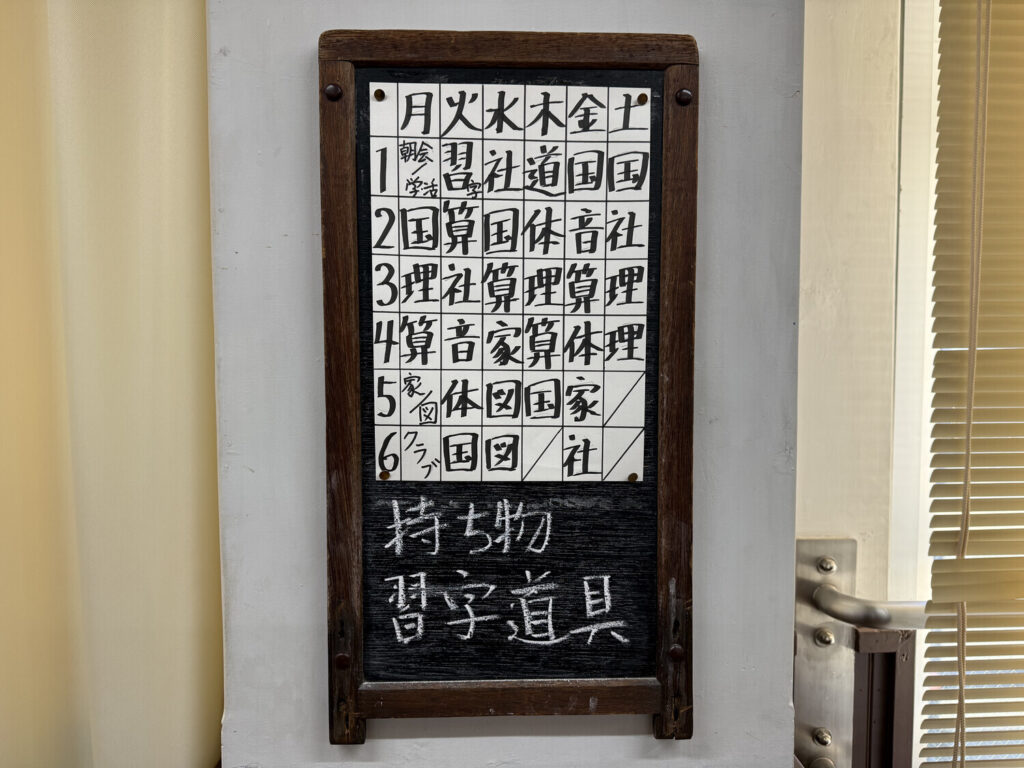 月 火 水 木 金 土
1 朝会/学活 習字 社 道 国 国
2 国 算 国 体 音 社
3 理 社 算 理 算 理
4 算 音 家 算 体 理
5 家/図 体 図 国 家 /
6 クラブ 国 図 / 社 /
持ち物
習字道具